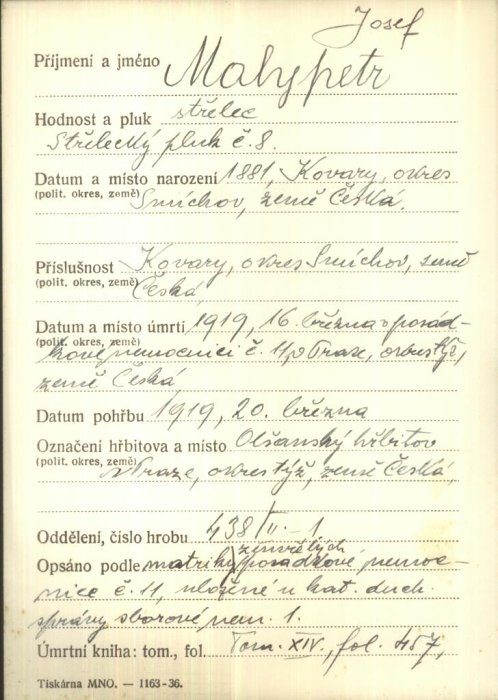 Josef
Příjmení a jméno Malypetr
Hodnost a pluk střelec
Střelecký pluk č. 8.
Datum a místo narození 1881, Kovary, okres
(polit. okres, země) Smíchov, země Česká.
Příslušnost Kovary, okres Smíchov, země
(polit. okres, země) Česká,
Datum a místo úmrtí 1919, 16. března v posád-
(polit. okres, země)
kové nemocnici č. 11, v Praze, okres týž,
země Česká,
Datum pohřbu 1919, 20. března
Označení hřbitova a místo Olšanský hřbitov
(polit. okres, země) v Praze, okres týž, země Česká,
Oddělení, číslo hrobu 438/II. - 1
zemřelých
Opsáno podle matriky posádkové nemoc-
nice č. 11, uložené u kat. duch.
správy sborové nem. 1.
Úmrtní kniha: tom., fol. Tom. XIV., fol. 457,
Tiskárna MNO. — 1163-36.